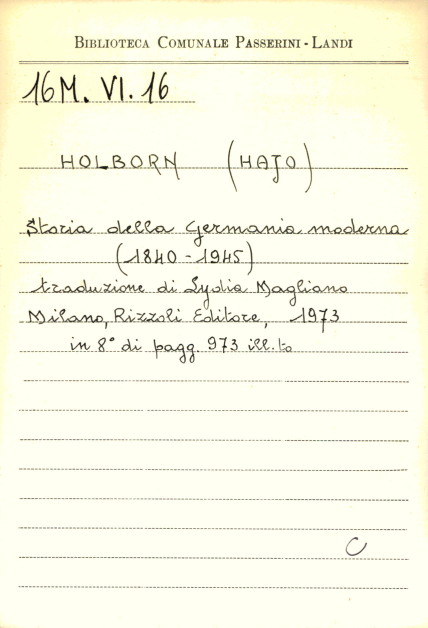 BIBLIOTECA COMUNALE PASSERINI - LANDI
16 M. VI. 16
HOLBORN (HAJO)
Storia della Germania moderna
(1840 - 1945)
traduzione di Lydia Magliano
Milano, Rizzoli Editore, 1973
in 8° di pagg. 973 ill.to
C